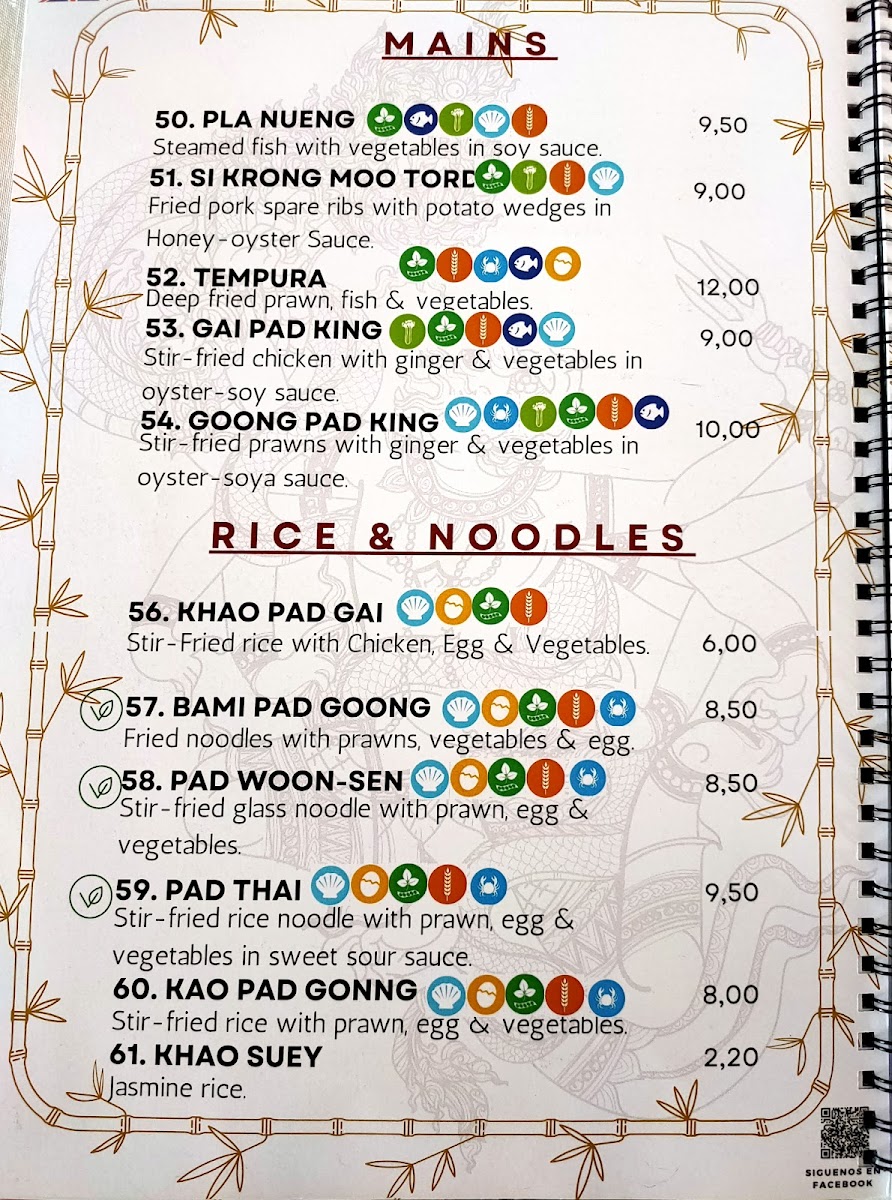 MAINS
50. PLA NUENG 9,50
Steamed fish with vegetables in soy sauce.
51. SI KRONG MOO TORD 9,00
Fried pork spare ribs with potato wedges in
Honey-oyster Sauce.
52. TEMPURA 12,00
Deep fried prawn, fish & vegetables.
53. GAI PAD KING 9,00
Stir-fried chicken with ginger & vegetables in
oyster-soy sauce.
54. GOONG PAD KING 10,00
Stir-fried prawns with ginger & vegetables in
oyster-soya sauce.
RICE & NOODLES
56. KHAO PAD GAI
Stir-Fried rice with Chicken, Egg & Vegetables. 6,00
57. BAMI PAD GOONG 8,50
Fried noodles with prawns, vegetables & egg.
58. PAD WOON-SEN 8,50
Stir-fried glass noodle with prawn, egg &
vegetables.
59. PAD THAI 9,50
Stir-fried rice noodle with prawn, egg &
vegetables in sweet sour sauce.
60. KAO PAD GONNG 8,00
Stir-fried rice with prawn, egg & vegetables.
61. KHAO SUEY 2,20
Jasmine rice.
SIGUENOS EN
FACEBOOK